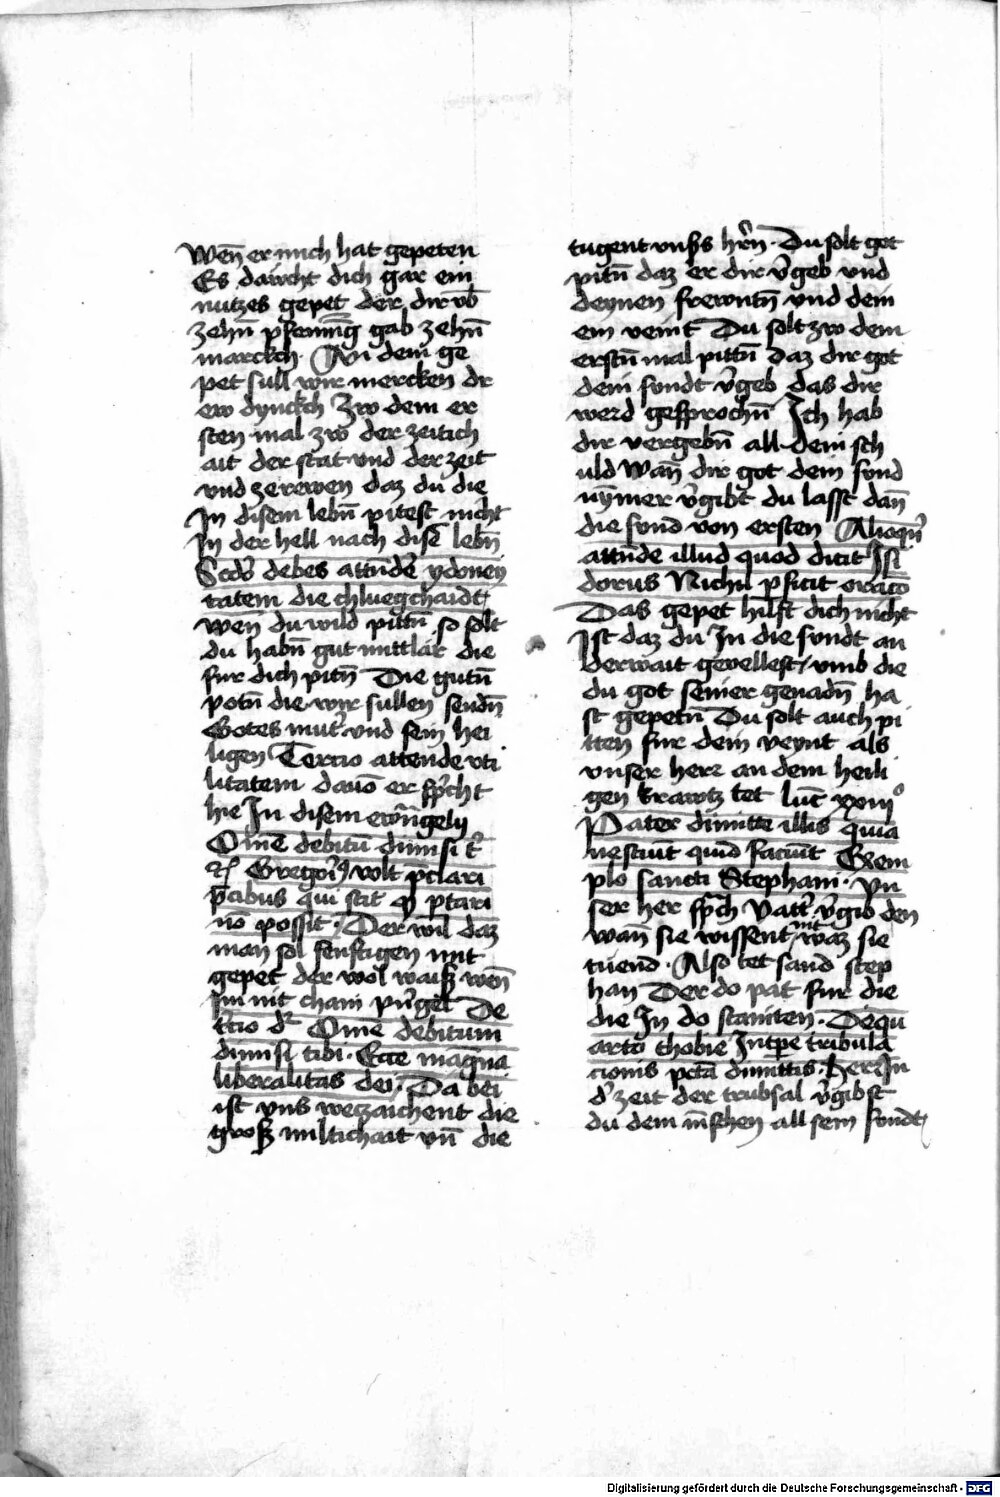 Wen̄ er mich hat gepeten
Es dawcht dich gar ein
nutzes gepet der dir vb̄
zehn̄ pfenning gab zehn̄
marckch. An dem ge
pet sull wir mercken dr
ew dynckch Zw dem er
sten mal zw der zeitich
ait der stat vnd der zeit
vnd zerewen daz du die
In disem lebn̄ pitest nicht
In der hell nach disē lebn̄
Scdo debes attendē ydoney
tatem die chluegchaidt
wen̄ du wild pittn̄ so solt
du habn̄ gut mittlär die
fur dich pittn̄ Die gutn̄
potn̄ die wir sullen sendn̄
Gotes mut̄ vnd sein hei
ligen Tercio attende vti
litatem dauō er sp̄cht
hie In disem ewn̄gely
Om̄e debitū dimisi t̄
Gregori9 volt p̄clari
p̄cibus qui scit q p̄tari
nō possit. Der wil daz
man sol senftigen mit
gepet der wol waiß wen̄
Im nit cham pūgel De
t̄cio dr Om̄e debitum
dimisi tibi. Ecce magna
liberalitas dei. Da bei
ist vns weczaichent die
groß miltichait vn̄ die
tugent vnß hr̄n. Du solt got
pittn̄ daz er dir v̄geb vnd
deynen frewntn̄ vnd dein
em veint Du solt zw dem
erstn̄ mal pittn̄ daz dir got
dein sundt v̄geb das dir
werd gesprochn̄ Ich hab
dir vergebn̄ all dein sch
uld Wan̄ dir got dein sund
nȳmer v̄gibt du lasst dan̄
die sund von ersten Alioqn̄
attende illud quod dicit Isi
dorus Nichil p̄ficit oraco
Das gepet hilft dich nicht
Ist daz du In die sundt an
derwait gevellest vmb die
du got seiner genadn̄ ha
st gepetn̄ Du solt auch pi
tten fur dein veynt als
vnser herr an dem heili
gen krawtz tet luc̄ xxiiiº
Pater dimitte illis quia
nesciunt quid faciunt Exem
plo sancti Stephani. Vn
ser her sp̄ch Vatt̄ v̄gib den
wan̄ sie wissent nit waz sie
tuend. Also tet sand step
han Der do pat fur die
die In do stainten. Dequ
arto thobie In tp̄e tribula
cionis pctā dimittis. herr In
d' zeit der trubsal v̄gibst
du dem m̄schen all sein sundt
Digitalisierung gefördert durch die Deutsche Forschungsgemeinschaft - DFG